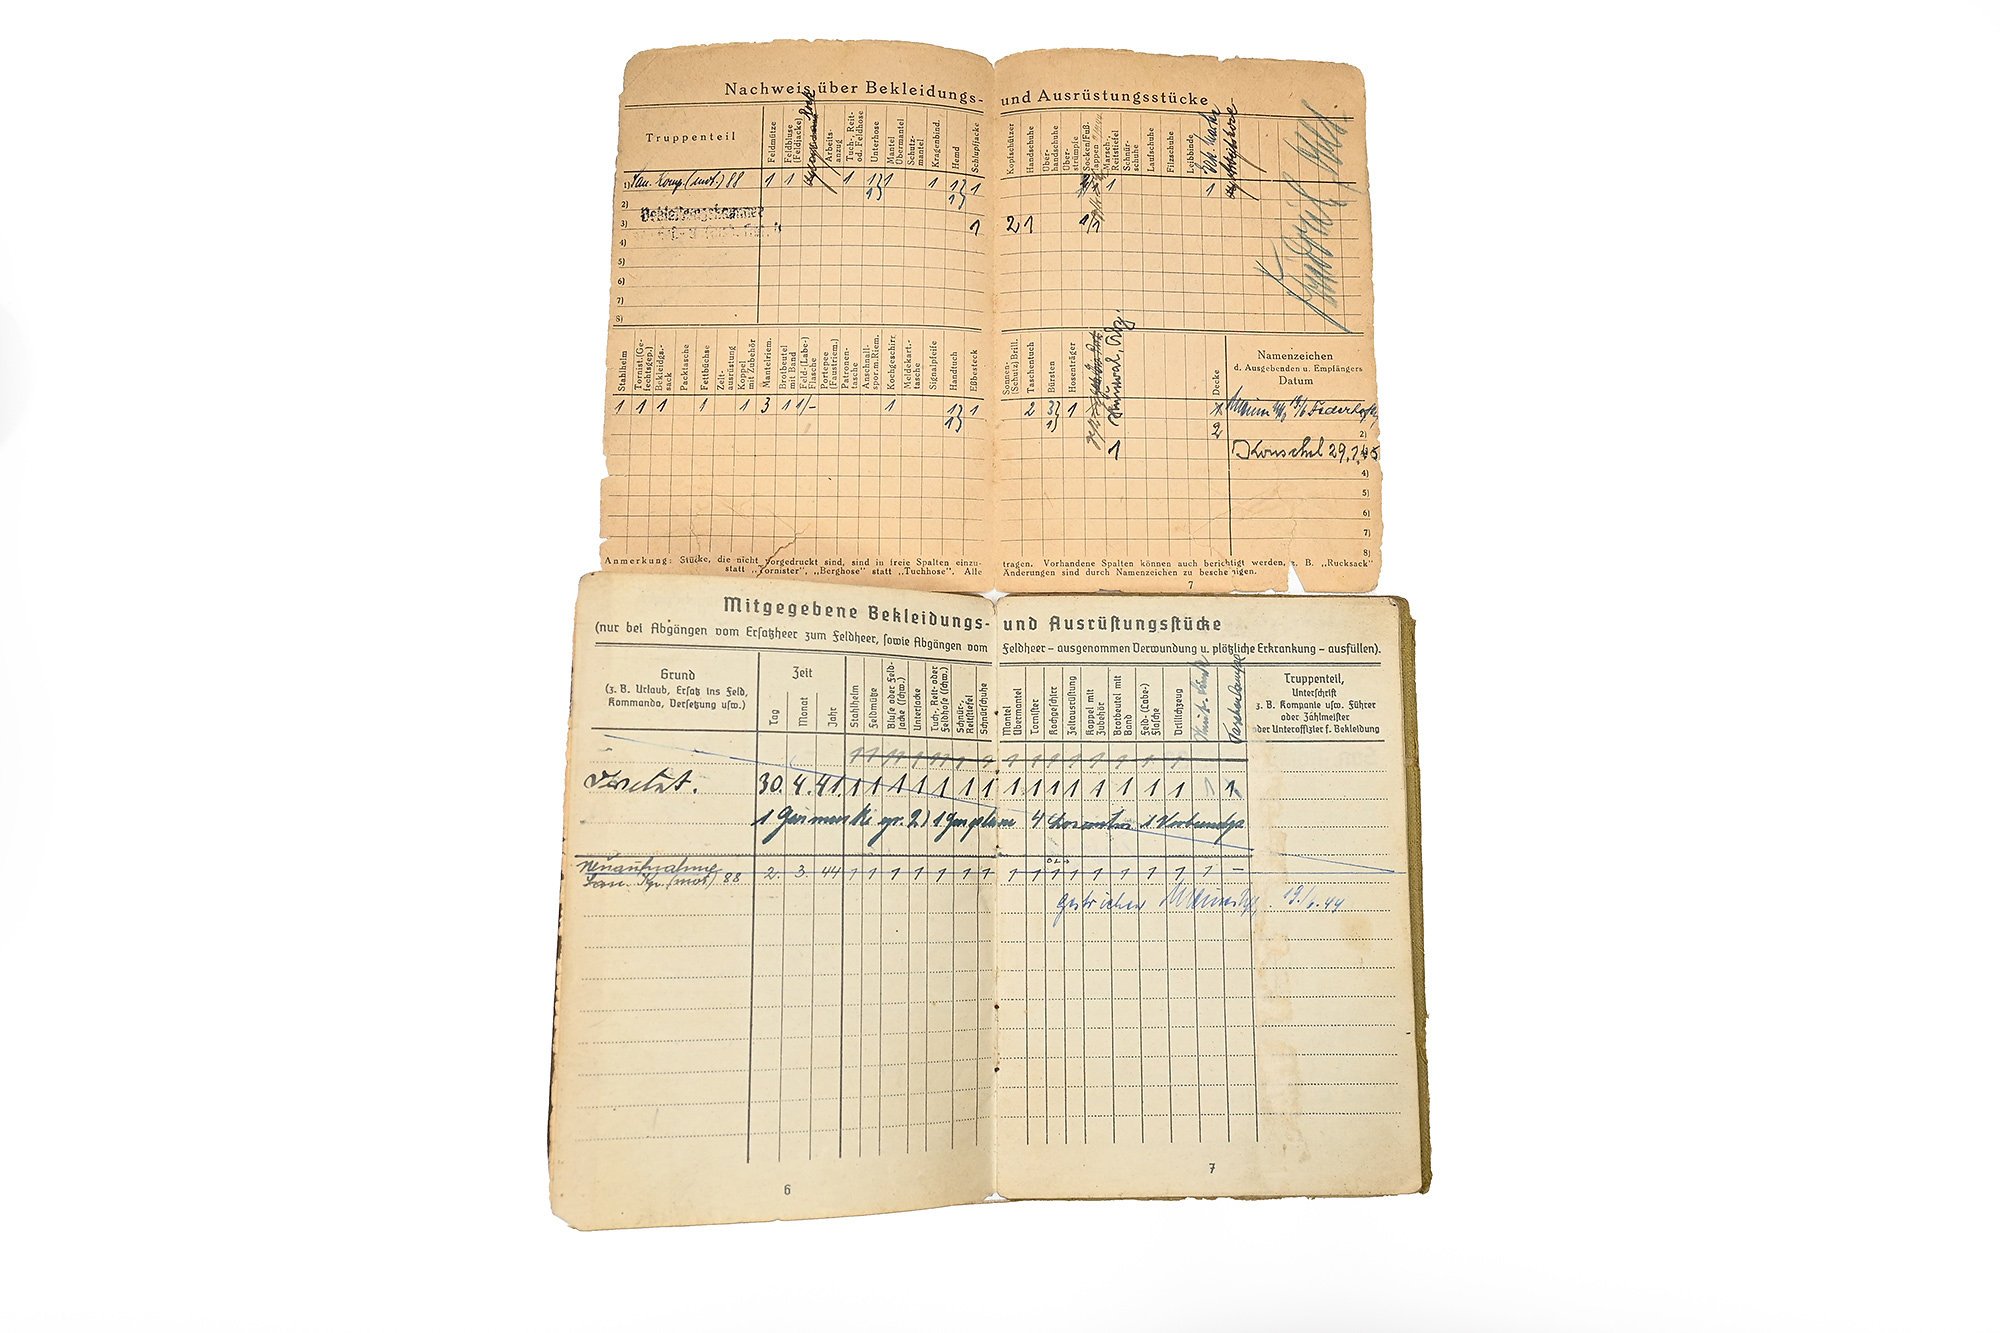 Nachweis über Bekleidungs- und Ausrüstungsstücke
Truppenteil
Feldmütze
Feldbluse (Feldjacke)
Arbeitsanzug
Tuch-, Reit- od. Feldhose
Unterhose
Mantel Übermantel
Schutz-mantel
Kragenbind.
Hemd
Schlupfjacke
Kopfschützer
Handschuhe
Über-handschuhe
Über-strümpfe
Socken/Fuß-lappen
Marsch-, Reitstiefel
Schnür-schuhe
Laufschuhe
Filzschuhe
Leibbinde
1) San. Komp. (mot.) 88 1 1 1 1 1 1 1 1
2)
3) Bekleidungskammer 1 2 1
4)
5)
6)
7)
8)
Stahlhelm
Tornist. (Ge-fechtsgep.)
Bekleidgs.-sack
Packtasche
Fettbüchse
Zelt-ausrüstung
Koppel mit Zubehör
Mantelriem.
Brotbeutel mit Band
Feld-(Labe-) Flasche
Portepee (Faustriem.)
Patronen-tasche
Anschnall-spor.m.Riem.
Kochgeschirr
Meldekart.-tasche
Signalpfeife
Handtuch
Eßbesteck
Sonnen-(Schutz) Brill.
Taschentuch
Bürsten
Hosenträger
Decke
Namenzeichen
d. Ausgebenden u. Empfängers
Datum
1 1 1 1 1 3 1 1/- 1 1 2 1
2)
2
1 29.1.45
4)
5)
6)
7)
8)
Anmerkung: Stücke, die nicht vorgedruckt sind, sind in freie Spalten einzu- tragen. Vorhandene Spalten können auch berichtigt werden, z. B. „Rucksack"
statt „Tornister", „Berghose" statt „Tuchhose". Alle Änderungen sind durch Namenzeichen zu bescheinigen.
7
Mitgegebene Bekleidungs- und Ausrüstungsstücke
(nur bei Abgängen vom Ersatzheer zum Feldheer, sowie Abgängen vom Feldheer – ausgenommen Verwundung u. plötzliche Erkrankung – ausfüllen).
Grund
(z. B. Urlaub, Ersatz ins Feld,
Kommando, Versetzung usw.)
Zeit
Tag
Monat
Jahr
Stahlhelm
Feldmütze
Bluse oder Feld-jacke (schw.)
Unterjacke
Tuch-, Reit- oder Feldhose (schw.)
Schnür-, Reitstiefel
Schnürschuhe
Mantel Übermantel
Tornister
Kochgeschirr
Zeltausrüstung
Koppel mit Zubehör
Brotbeutel mit Band
Feld-(Labe-) Flasche
Drillichzeug
Taschenlampe
Truppenteil,
Unterschrift
z. B. Kompanie usw. Führer
oder Zahlmeister
oder Unteroffizier f. Bekleidung
1 1 1 1 1 1 1 1 1 1 1 1 1 1 1
30. 4. 41. 1 1 1 1 1 1 1 1 1 1 1 1 1 1 1 1 1
1 Gasmaske gr. 2) 1 Gasplane 4
Neuaufnahme
San. Kp. (mot) 88 2. 3. 44 1 1 1 1 1 1 1 1 1 1 1 1 1 1 1 1 –
gestrichen 19/6.44
6
7